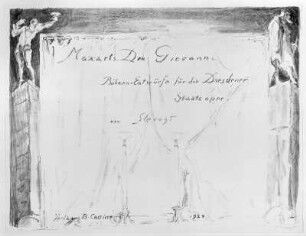 Mozarts Don Giovanni.
Bühnen-Entwürfe für die Dresdener
Staatsoper.
von Slevogt
Verlag B. Cassirer 1924